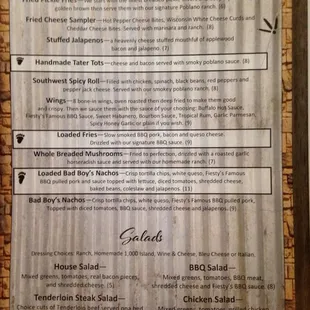 golden brown then serve them with our signature Poblano ranch. (6)
Fried Cheese Sampler—Hot Pepper Cheese Bites, Wisconsin White Cheese Curds and
Cheddar Cheese Bites. Served with marinara and ranch. (8)
Stuffed Jalapenos— a heavenly cheese stuffed mouthful of applewood
bacon and jalapeno. (7)
Handmade Tater Tots—cheese and bacon served with smoky poblano sauce. (8)
Southwest Spicy Roll—Filled with chicken, spinach, black beans, red peppers and
pepper jack cheese. Served with our smokey poblano ranch. (8)
Wings—8 bone in wings, oven roasted then deep fried to make them good
and crispy. Then we sauce them with the sauce of your choosing: Buffalo Hot Sauce,
Fiesty's Famous BBQ Sauce, Sweet Habanero, Bourbon Sauce, Tropical Rum, Garlic Parmesan,
Spicy Honey Garlic or plain if you wish. (9)
Loaded Fries—Slow smoked BBQ pork, bacon and queso cheese.
Drizzled with our signature BBQ sauce. (9)
Whole Breaded Mushrooms—Fried to perfection, drizzled with a roasted garlic
horseradish sauce and served with our homemade ranch. (7)
Loaded Bad Boy's Nachos—Crisp tortilla chips, white queso, Fiesty's Famous
BBQ pulled pork and topped with lettuce, diced tomatoes, shredded cheese,
baked beans, coleslaw and jalapenos. (11)
Bad Boy's Nachos—Crisp tortilla chips, white queso, Fiesty's Famous BBQ pulled pork,
Topped with diced tomatoes, BBQ sauce, shredded cheese and jalapenos. (9)
Salads
Dressing Choices: Ranch, Homemade 1,000 Island, Wine & Cheese, Bleu Cheese or Italian.
House Salad—
Mixed greens, tomatoes, real bacon pieces,
and shredded cheese. (5)
BBQ Salad—
Mixed greens, tomatoes, BBQ meat,
shredded cheese and Fiesty's BBQ sauce. (8)
Tenderloin Steak Salad—
Choice cuts of Tenderloin beef served on a bed
Chicken Salad—